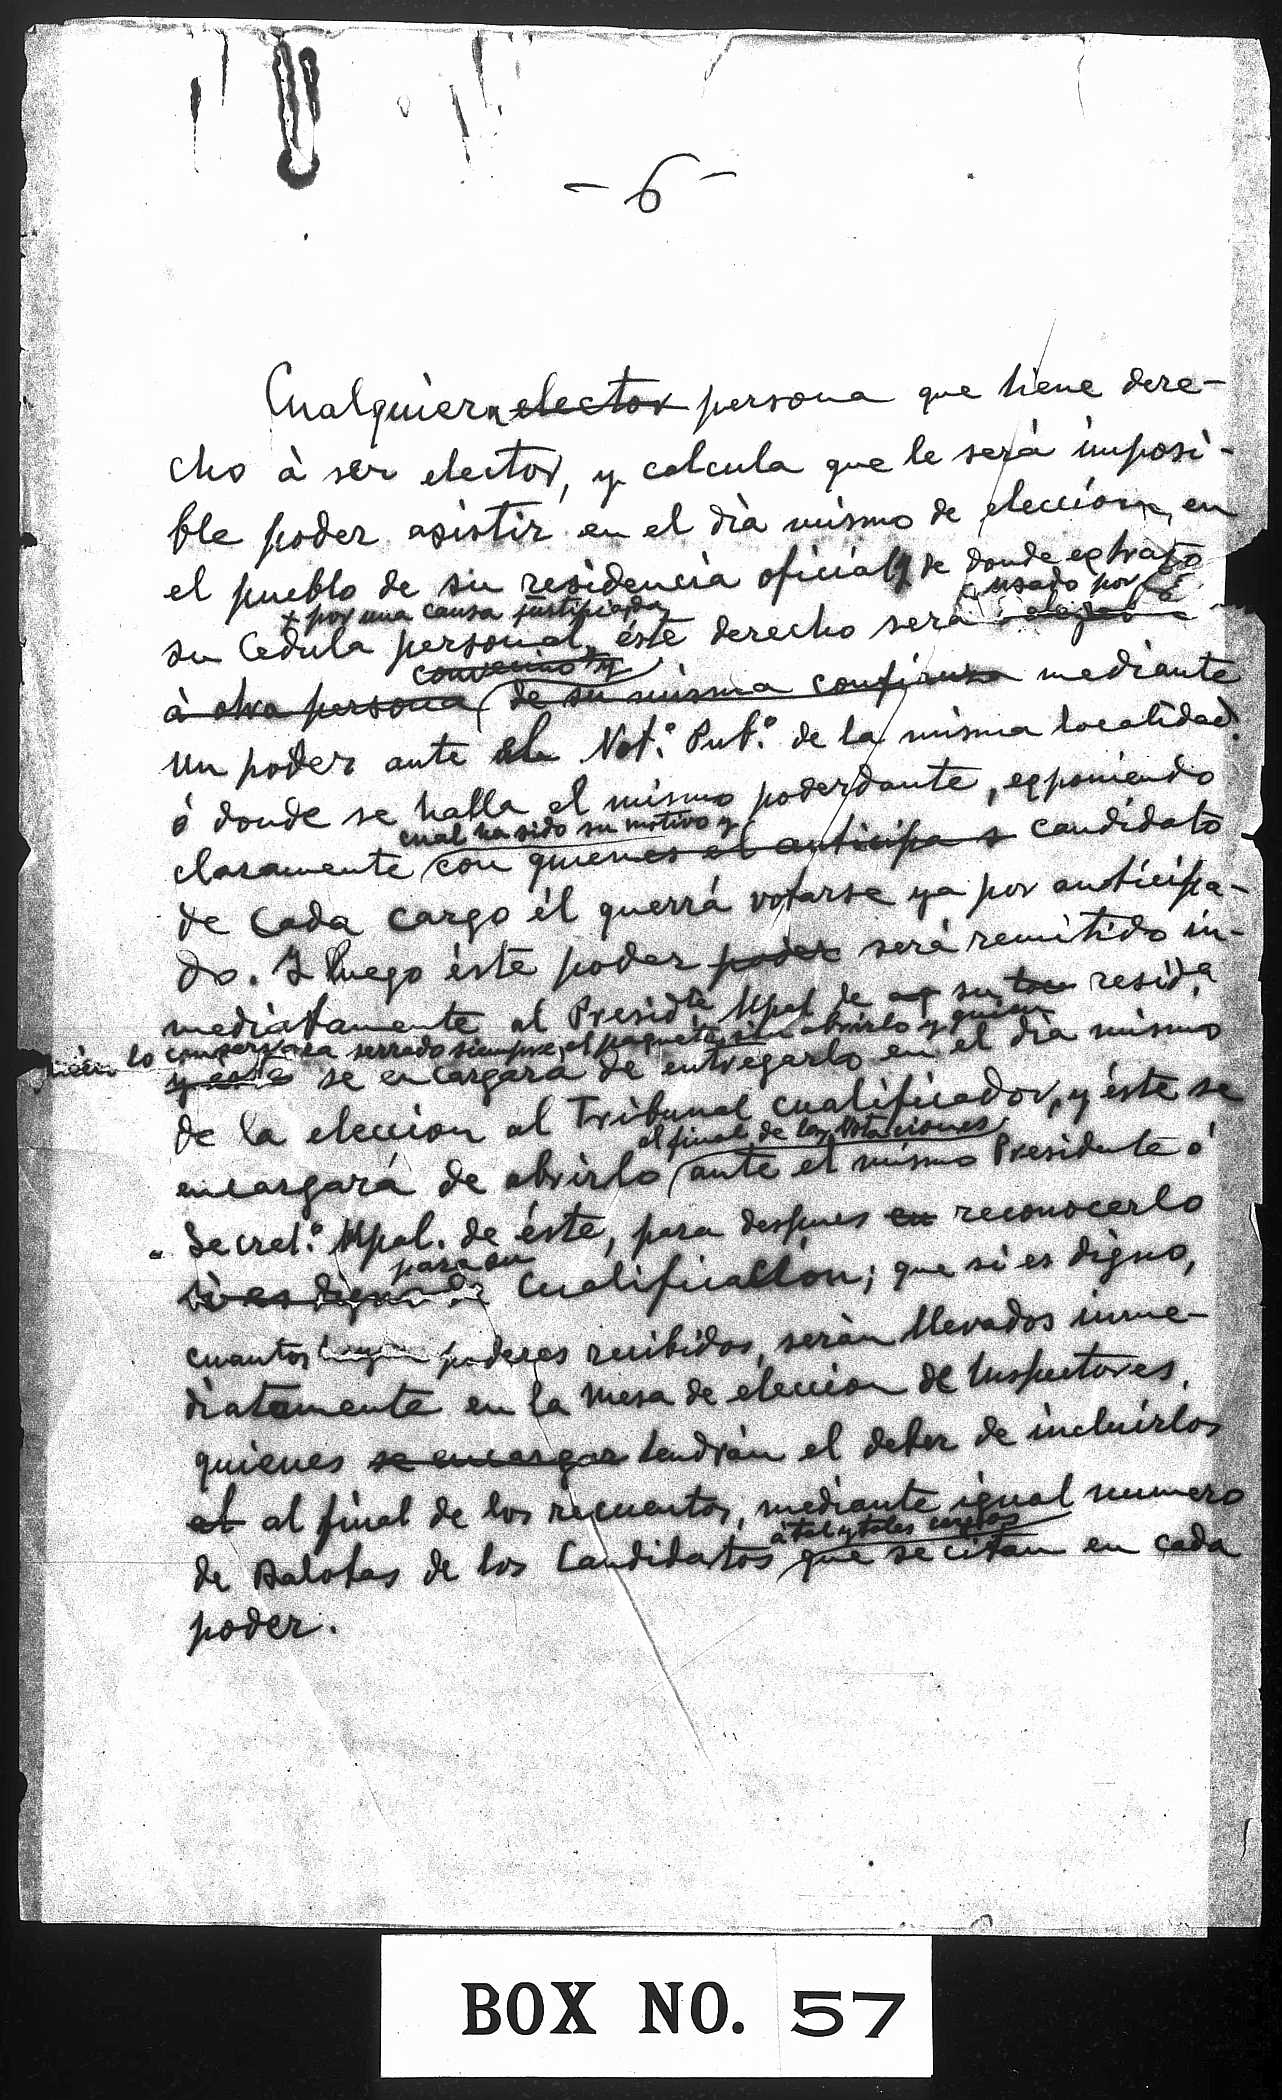 - 6 -
Cualquiera elector persona que tiene dere-
cho à ser elector, y calcula que le será imposi-
ble poder asistir en el dia mismo de eleccion, en
el pueblo de su residencia oficial, y de donde extrajo
x por una causa justificada
usado por él
su Cedula personal, éste derecho será
convecino y
à otra persona de su misma confianza mediante
un poder ante el Not.º Pub.º de la misma localidad
ó donde se halla el mismo poderdante, exponiendo
cual ha sido su motivo y
claramente con quienes el anticipa s candidato
de cada cargo él querrá votarse ya por anticipa-
do. Y luego éste poder poder será remitido in-
mediatamente al Presidte Mpal de su resida
quién lo conservara serrado siempre el paquete sin abrirlo y quien
y este se encargará de entregarlo en el dia mismo
de la eleccion al Tribunal cualificador, y éste se
al final de las Votaciones
encargará de abrirlo ante el mismo Presidente ó
Secret.º Mpal. de éste, para despues en reconocerlo
para su
si es digno de Cualificacion; que si es digno,
cuantos poderes recibidos, serán llevados inme-
diatamente en la mesa de eleccion de Inspectores,
quienes se encargar tendrán el deber de incluirlos
al al final de los recuentos, mediante igual numero
à tal y tales
de Balotas de los Candidatos que se citan en cada
poder.
BOX NO. 57